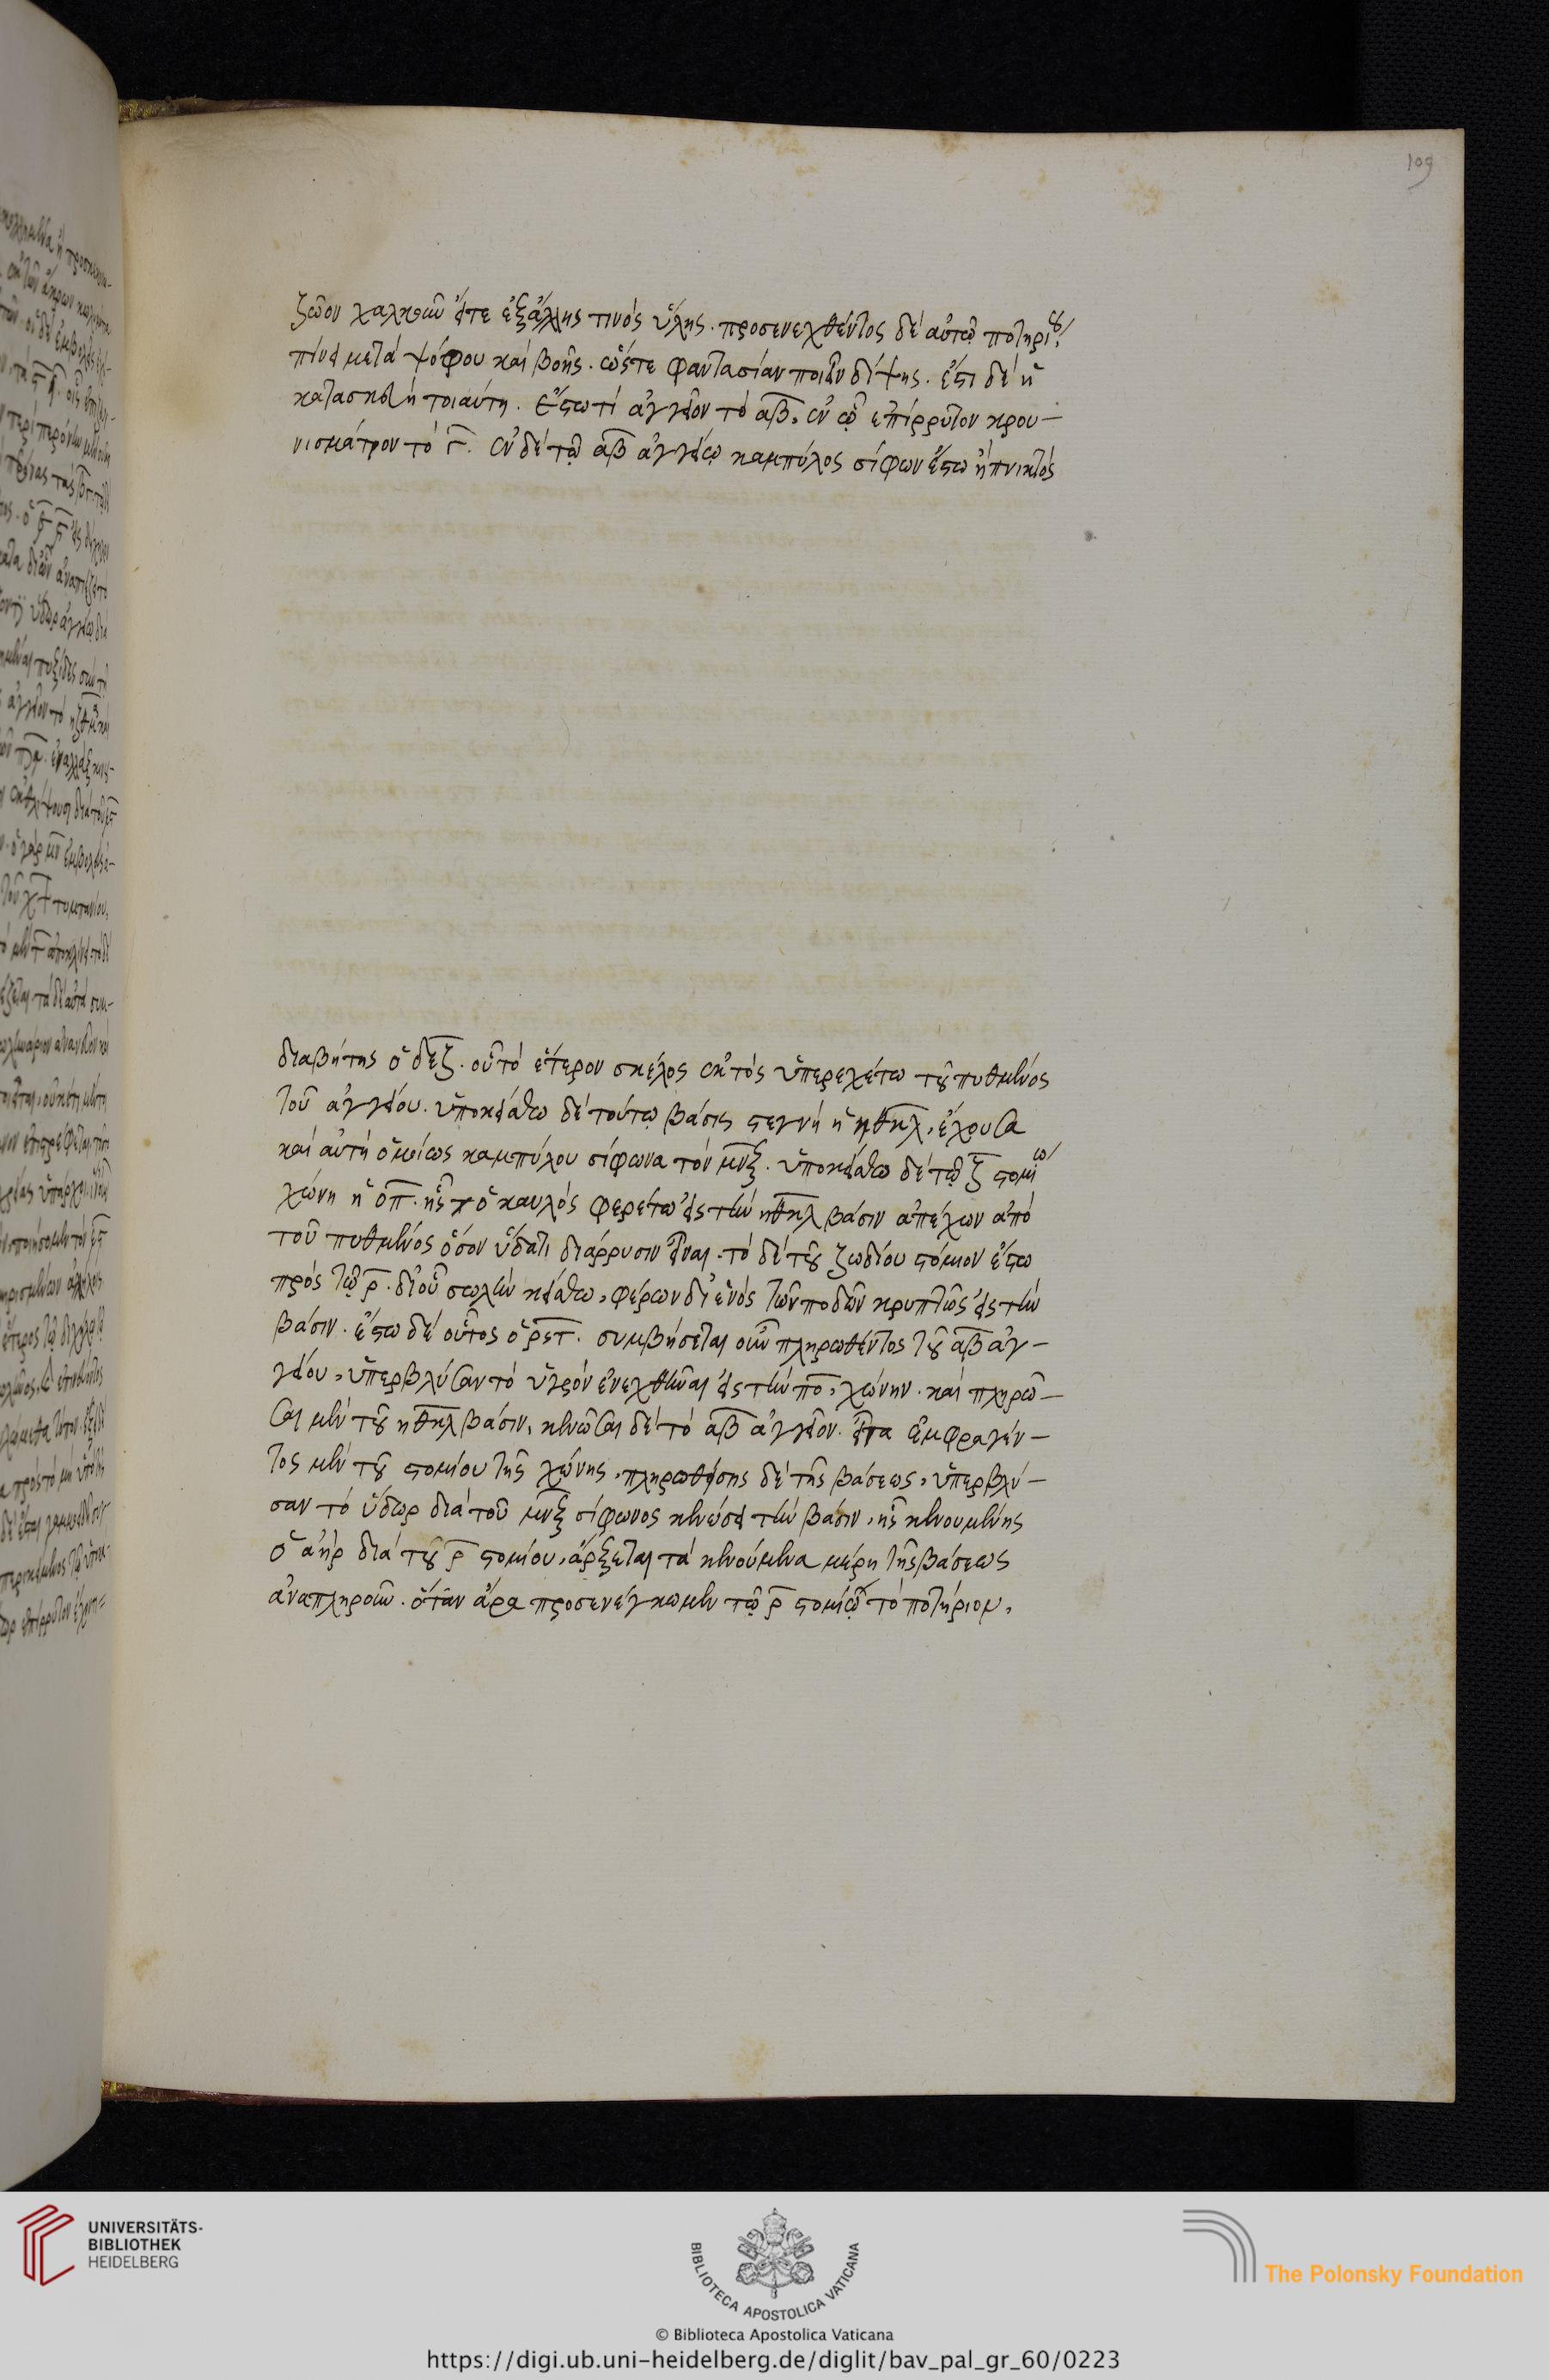 109
ζῶον χαλκοῦν εἴτε ἐξ ἄλλης τινός ὕλης. προσενεχθέντος δέ αὐτῶ ποτηρίου,
πίνει μετά ψόφου καί βοῆς. ὥστε φαντασίαν ποιεῖν δίψης. ἔστι δέ ἡ
κατασκευή τοιαύτη. Ἔστω τί ἀγγεῖον τό αβ, ἐν ᾧ ἐπίρρυτον κρου-
νισμάτιον τό γ. ἐν δέ τῷ αβ ἀγγείῳ καμπύλος σίφων ἔστω ἢ πνικτός
διαβήτης ὁ δεζ. οὗ τό ἕτερον σκέλος ἐκτός ὑπερεχέτω τοῦ πυθμένος
τοῦ ἀγγείου. ὑποκείσθω δέ τούτῳ βάσις στεγνή ἡ ηθκλ, ἔχουσα
καί αὐτή ὁμοίως καμπύλου σίφωνα τόν μνξ. ὑποκείσθω δέ τῷ ζ στομίω
χώνη ἡ οπ. ἧς ὁ καυλός φερέτω εἰς τήν ηθκλ βάσιν ἀπέχων ἀπό
τοῦ πυθμένος ὅσον ὕδατι διάρρυσιν εἶναι. τό δέ τοῦ ζωδίου στόμιον ἔστω
πρός τῷ ρ. δι' οὗ σωλήν κείσθω, φέρων δι' ἑνός τῶν ποδῶν κρυπτῶς εἰς τήν
βάσιν. ἔστω δέ οὗτος ὁ ρστ. συμβήσεται οὖν πληρωθέντος τοῦ αβ ἀγ-
γείου, ὑπερβλύσαν τό ὑγρόν ἐνεχθῆναι εἰς τήν πο, χώνην. καί πληρῶ-
σαι μέν τοῦ ηθκλ βάσιν, κενῶσαι δέ τό αβ ἀγγεῖον. εἶτα ἐμφραγέν-
τος μέν τοῦ στομίου τῆς χώνης, πληρωθείσης δέ τῆς βάσεως, ὑπερβλύ-
σαν τό ὕδωρ διά τοῦ μνξ σίφωνος κενώσει τήν βάσιν, ἧς κενουμένης
ὁ ἀήρ διά τοῦ ρ στομίου, ἄρξεται τά κενούμενα μέρη τῆς βάσεως
ἀναπληροῦν. ὅταν ἄρα προσενέγκωμεν τῷ ρ στομίῳ τό ποτήριον,
UNIVERSITÄTS-
BIBLIOTHEK
HEIDELBERG
BIBLIOTECA APOSTOLICA VATICANA
The Polonsky Foundation
© Biblioteca Apostolica Vaticana
https://digi.ub.uni-heidelberg.de/diglit/bav_pal_gr_60/0223